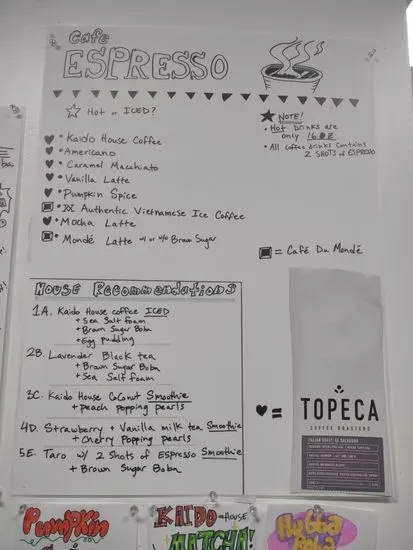 Cafe
ESPRESSO
Hot or ICED?
NOTE!
• Hot drinks are
only 16oz
• All coffee drinks contains
2 SHOTS of ESPRESSO
• Kaido House Coffee
• Americano
• Caramel Macchiato
• Vanilla Latte
• Pumpkin Spice
• Authentic Vietnamese Ice Coffee
• Mocha Latte
• Mondé Latte w/ or w/o Brown Sugar
= Café Du Mondé
House Recommendations
1A. Kaido House coffee ICED
+ Sea Salt foam
+ Brown Sugar Boba
+ Egg pudding
2B. Lavender Black tea
+ Brown Sugar Boba
+ Sea Salt foam
3C. Kaido House Coconut Smoothie
+ peach popping pearls
4D. Strawberry + Vanilla milk tea Smoothie
+ Cherry Popping pearls
5E. Taro w/ 2 Shots of Espresso Smoothie
+ Brown Sugar Boba
=
TOPECA
COFFEE ROASTERS
Pumpkin
KAIDO HOUSE
MATCHA!